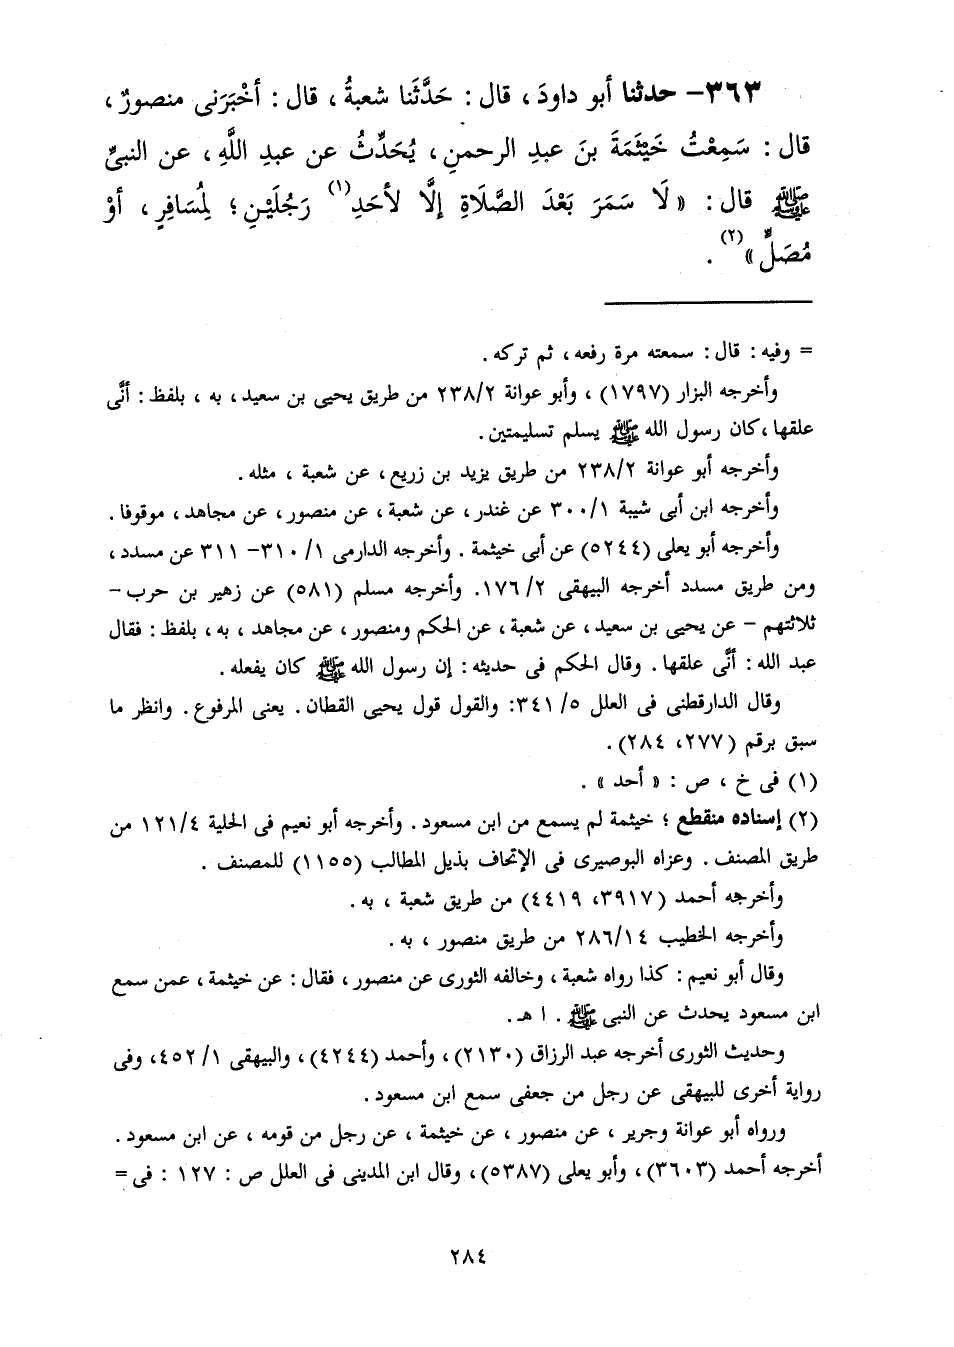 ٣٦٣- حدثنا أبو داودَ ، قال : حَدَّثَنا شعبةُ ، قال : أخْبَرَنى منصورٌ ،
قال : سَمِعْتُ خَيْثَمَةَ بنَ عبدِ الرحمنِ ، يُحَدِّثُ عن عبدِ اللَّهِ ، عن النبىِّ
ﷺ قال : « لَا سَمَرَ بَعْدَ الصَّلَاةِ إِلَّا لأحَدِ(١) رَجُلَيْنِ ؛ لِمُسَافِرٍ ، أوْ
مُصَلٍّ »(٢) .
= وفيه : قال : سمعته مرة رفعه ، ثم تركه .
وأخرجه البزار (١٧٩٧) ، وأبو عوانة ٢٣٨/٢ من طريق يحيى بن سعيد ، به ، بلفظ : أنَّى
علقها ، كان رسول الله ﷺ يسلم تسليمتين .
وأخرجه أبو عوانة ٢٣٨/٢ من طريق يزيد بن زريع ، عن شعبة ، مثله .
وأخرجه ابن أبى شيبة ٣٠٠/١ عن غندر ، عن شعبة ، عن منصور ، عن مجاهد ، موقوفا .
وأخرجه أبو يعلى (٥٢٤٤) عن أبى خيثمة . وأخرجه الدارمى ٣١٠/١- ٣١١ عن مسدد ،
ومن طريق مسدد أخرجه البيهقى ١٧٦/٢. وأخرجه مسلم (٥٨١) عن زهير بن حرب -
ثلاثتهم - عن يحيى بن سعيد ، عن شعبة ، عن الحكم ومنصور ، عن مجاهد ، به ، بلفظ : فقال
عبد الله : أنَّى علقها . وقال الحكم فى حديثه : إن رسول الله ﷺ كان يفعله .
وقال الدارقطنى فى العلل ٣٤١/٥: والقول قول يحيى القطان . يعنى المرفوع . وانظر ما
سبق برقم (٢٧٧، ٢٨٤).
(١) فى خ ، ص : « أحد » .
(٢) إسناده منقطع ؛ خيثمة لم يسمع من ابن مسعود . وأخرجه أبو نعيم فى الحلية ١٢١/٤ من
طريق المصنف . وعزاه البوصيرى فى الإتحاف بذيل المطالب (١١٥٥) للمصنف .
وأخرجه أحمد (٣٩١٧، ٤٤١٩) من طريق شعبة ، به .
وأخرجه الخطيب ٢٨٦/١٤ من طريق منصور ، به .
وقال أبو نعيم : كذا رواه شعبة ، وخالفه الثورى عن منصور ، فقال : عن خيثمة ، عمن سمع
ابن مسعود يحدث عن النبى ﷺ . ا هـ .
وحديث الثورى أخرجه عبد الرزاق (٢١٣٠) ، وأحمد (٤٢٤٤) ، والبيهقى ٤٥٢/١، وفى
رواية أخرى للبيهقى عن رجل من جعفى سمع ابن مسعود .
ورواه أبو عوانة وجرير ، عن منصور ، عن خيثمة ، عن رجل من قومه ، عن ابن مسعود .
أخرجه أحمد (٣٦٠٣) ، وأبو يعلى (٥٣٨٧) ، وقال ابن المدينى فى العلل ص : ١٢٧ : فى =
٢٨٤